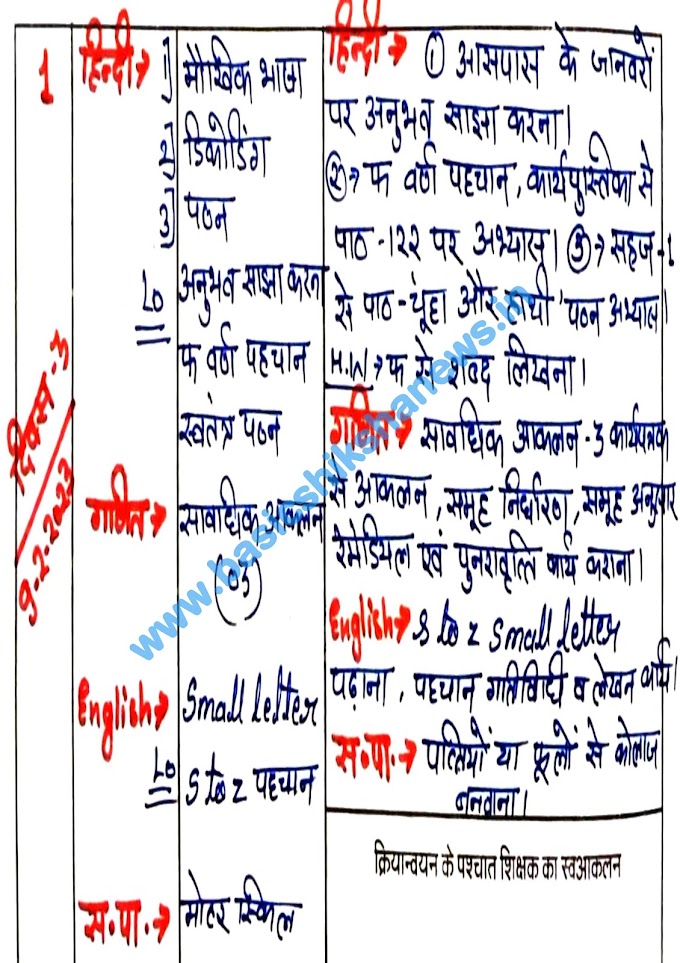 1
दिवस-3
9-2-2023
हिन्दी→ 1] मौखिक भाषा
2] डिकोडिंग
3] पठन
Lo अनुभव साझा करना
फ वर्ण पहचान
स्वतंत्र पठन
गणित→ सावधिक आकलन
(03)
English→ Small letter
Lo s to z पहचान
स.पा.→ मोटर स्किल
हिन्दी→ ① आसपास के जानवरों
पर अनुभव साझा करना।
②→ फ वर्ण पहचान, कार्यपुस्तिका से
पाठ-122 पर अभ्यास। ③→ सहज-1
से पाठ-चूहा और हाथी पठन अभ्यास।
H.W→ फ से शब्द लिखना।
गणित→ सावधिक आकलन-3 कार्यपत्रक
से आकलन, समूह निर्धारण, समूह अनुसार
रेमेडियल एवं पुनरावृत्ति कार्य कराना।
English→ s to z small letter
पढ़ाना, पहचान गतिविधी व लेखन कार्य।
स.पा.→ पत्तियों या फूलों से कोलाज
बनवाना।
क्रियान्वयन के पश्चात शिक्षक का स्वआकलन
www.basicshikshanews.in